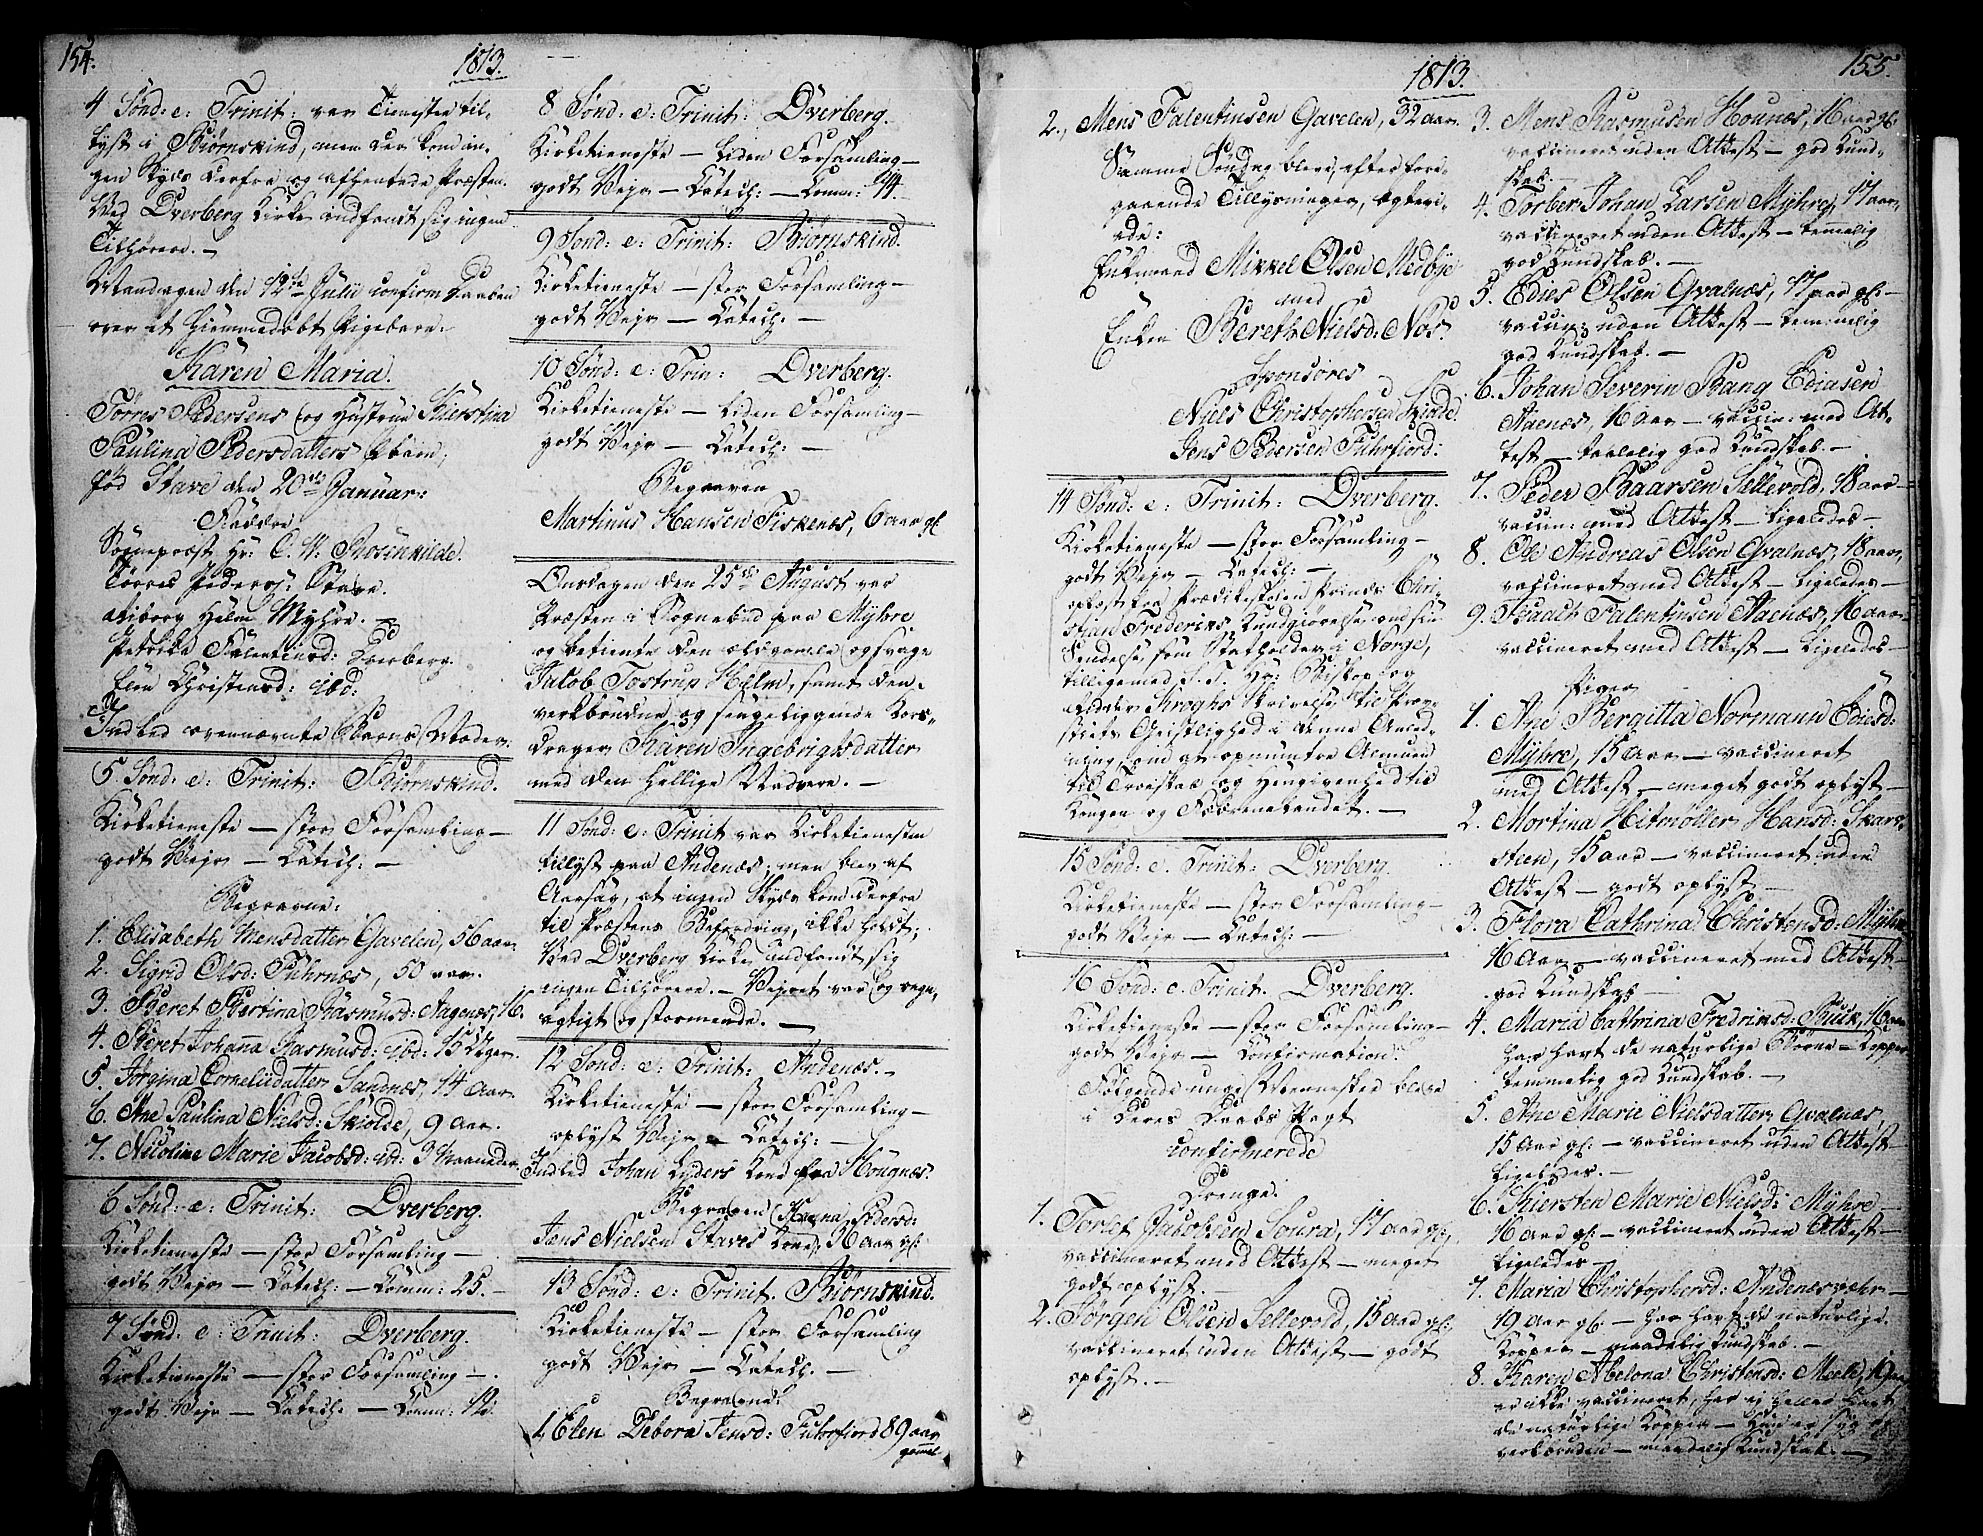 154.
1813.
4 Sønd: e: Trinit: var Tienesten til-
lyst i Biørnskind, men der kom in-
gen Skyds derfra og afhentede Præsten.
Ved Dverberg Kirke indfandt sig ingen
Tilhørere. —
Mandagen den 12te Julii confirm: Daaben
over et hiemmedøbt Pigebarn:
Karen Maria.
Torres Pedersens og Hustrue Kierstina
Paulina Pedersdatters Ebarn,
fød Stave den 20de Januar:
Faddere
Sognepræst Hr: C. W. Rosenkilde.
Torres Peders: Stave.
Wiborg Helm Myhre. —
Petrikke Falentinsd: Dverberg.
Elen Christensd: ibd:
Indled ovennævnte Barns Moder.
5 Sønd: e: Trinit: Biørnskind.
Kirketieneste — stor Forsamling —
godt Vejr — Catech: —
Begravne:
1. Elisabeth Mensdatter Gavelen, 56 aar.
2. Sigrid Olsd: Fuhrnæs, 50 aar.
3. Beret Bertina Rasmusd: Aagenæs, 16.
4. Beret Johanna Rasmusd: ibd: 15 Uger.
5. Jørgina Corneliidatter Sandnæs, 14 Aar.
6. Ane Paulina Nielsd: Skiolde, 9 Aar.
7. Nicoline Marie Jacobsd: ib: 3 Maaneder.
6 Sønd: e: Trinit: Dverberg.
Kirketieneste — stor Forsamling —
godt Vejr — Catech: — Comm: 25. —
7 Sønd: e: Trinit: Dverberg.
Kirketieneste — stor Forsamling —
godt Vejr — Catech: — Comm: 12.
8 Sønd: e: Trinit: Dverberg.
Kirketieneste — liden Forsamling —
godt Vejr — Catech: — Comm: 14. —
9 Sønd: e: Trinit: Biørnskind.
Kirketieneste — stor Forsamling —
godt Vejr — Catech: —
10 Sønd: e: Trin: Dverberg.
Kirketieneste — liden Forsamling —
godt Vejr — Catech: —
Begraven
Martinus Hansen Fiskenæs, 6 aar gl.
Onsdagen den 25de August var
Præsten i Sognebud paa Myhre
og betiente den eldgamle og svage
Jakob Tostrup Helm, samt den
verkbrudne og sengeliggende Kors-
drager Karen Ingebrigtsdatter
med den hellige Nadvere. —
11 Sønd: e: Trinit var Kirketienesten
tillyst paa Andenæs; men blev af
Aarsag, at ingen Skyds kom derfra
til Præstens Befordring, ikke holdt;
Ved Dverberg Kirke indfandt sig
ingen Tilhørere. — Vejret var og regn-
agtigt og stormende. —
12 Sønd: e: Trinit: Andenæs. —
Kirketieneste — stor Forsamling —
oplyst Vejr — Catech: —
Indled Johan Lyders Kone fra Hougnæs.
Begraven Hanna Pedersd:
Jens Nielsen Staves Kone, Aar gl:
13 Sønd: e: Trinit. Biørnskind.
Kirketieneste — stor Forsamling
godt Vejr — Catech: —
Begravne:
1. Elen Debora Jensd: Fuhrfiord 89 aar
gammel
155.
1813.
2., Mens Falentinsen Gavelen, 32 aar.
Samme Søndag bleve, efter fore-
gaaende Tillysninger, egtevi-
ede:
Enkemand Mikkel Olsen Medbye
med
Enken Bereth Nielsd: Nos.
Sponsores
Niels Christophersen Skiolde
Jens Pedersen Fuhrfiord:
14 Sønd: e: Trinit: Dverberg.
Kirketieneste — stor Forsamling —
godt Vejr — Catech: —
oplæst fra Prædikestolen Prinds Chri-
stian Frederiks Kundgiørelse om sin
Sendelse som Statholder i Norge,
tilligemed S. T. Hr: Biskop og
Ridder Kroghs Skrivelse til Prov-
stiets Geistlighed i denne Anled-
ning om at opmuntre Almuen
til Troeskab og Hengivenhed til
Kongen og Fædrenelandet. —
15 Sønd: e. Trinit: Dverberg.
Kirketieneste — stor Forsamling —
godt Vejr — Catech: —
16 Sønd: e. Trinit. Dverberg.
Kirketieneste — stor Forsamling —
godt Vejr — Confirmation.
Følgende unge Mennesker bleve
i deres Daabs Pagt
confirmerede
Drenge:
1. Torlef Jacobsen Soura, 17 aar gl,
vaccineret med Attest — meget
godt oplyst. —
2. Jørgen Olsen Sellevold, 15 aar gl:,
vaccineret uden Attest — godt
oplyst. —
3. Mens Rasmusen Hounæs, 16 aar gl.
vaccineret uden Attest — god Kund-
skab. —
4. Torber Johan Larsen Myhre, 17 aar,
vaccineret uden Attest — temmelig
god Kundskab. —
5. Edies Olsen Qvalnæs, 17 aar gl: —
vaccin: uden Attest — temmelig
god Kundskab. —
6. Johan Severin Bang Ediasen
Aaenæs, 16 aar — vaccin: med At-
test — taalelig god Kundskab. —
7. Peder Baarsen Sellevold, 18 aar —
vaccin: med Attest — ligeledes —
8. Ole Andreas Olsen Qvalnæs, 18 aar,
vaccineret med Attest — ligeledes —
9. Isaach Falentinsen Aaenæs, 16 aar —
vaccineret med Attest — ligeledes —
Piger
1. Ane Bergitta Normann Ediesd:
Myhre, 15 aar — vaccineret
med Attest — meget godt oplyst —
2. Mortina Hitmøller Hansd: Skar-
steen, 15 aar — vaccineret uden
Attest — godt oplyst —
3. Flora Cathrina Christensd: Myhre
16 Aar — vaccineret med Attest —
god Kundskab —
4. Maria Cathrina Fredriksd: Buck, 16 aar
har havt de naturlige Børne-Kopper
temmelig god Kundskab. —
5. Ane Marie Nielsdatter Qvalnæs,
15 Aar gl: — vaccineret uden Attest —
ligeledes. —
6. Kiersten Marie Nielsd: Myhre —
16 aar gl: — vaccineret uden Attest —
ligeledes —
7. Maria Christophersd: Andenesvær —
19 aar gl: — har havt de naturlige
Kopper — maadelig Kundskab. —
8. Karen Abelona Christensd: Meele, 19 aar
er ikke vaccineret, har ej heller havt
de naturlige Kopper — Hun er syg og
verkbruden — maadelig Kundskab. —